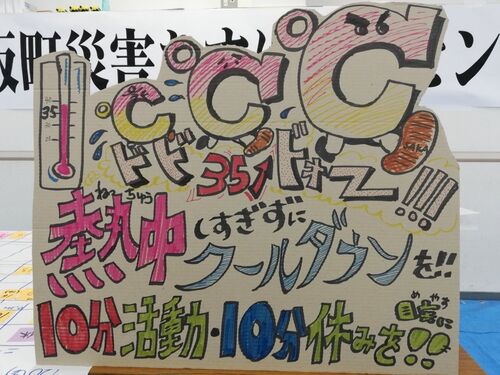 坂町災害
ン
℃℃℃
35
SAKA
ドドドォー!!!
35↑
ねっちゅう
熱中しすぎずに
クールダウンを!!
めやす
10分活動・10分休みを目安に!!